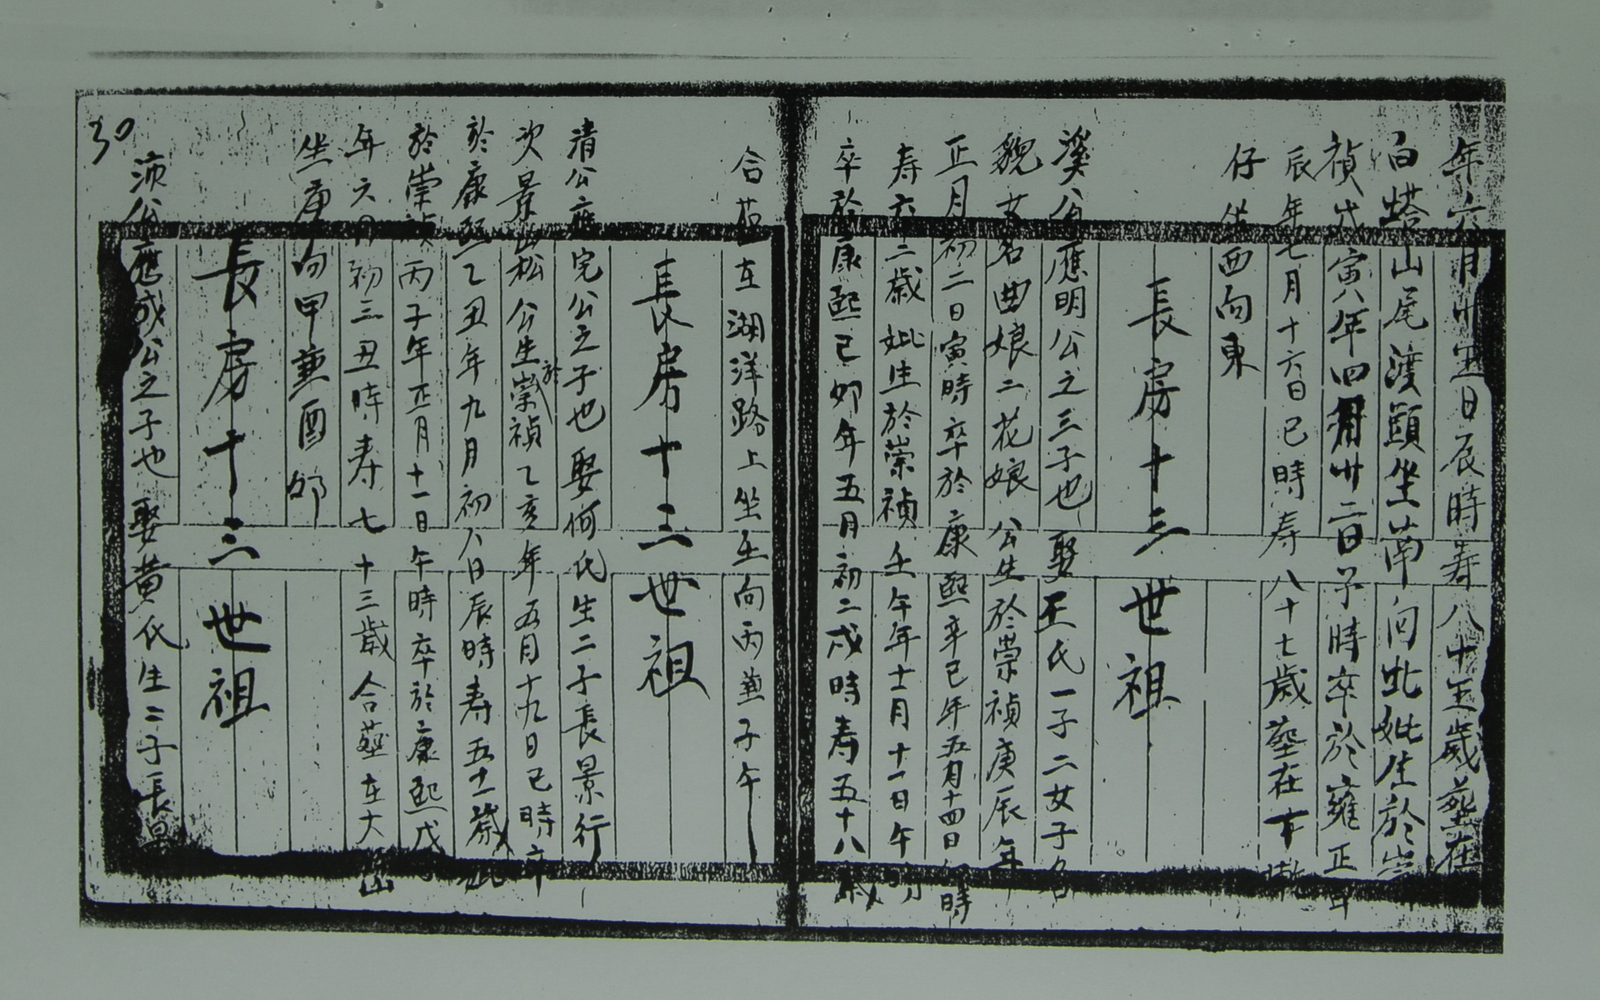 年六月廿五日辰時寿八十五歲葬在
白塔山尾渡頭坐南向北妣生於崇
禎戊寅年四月廿二日子時卒於雍正甲
辰年七月十六日巳時寿八十七歲葬在下
仔坐西向東
長房十三世祖
溪公應明公之三子也娶王氏一子二女子名
貌女名曲娘二花娘公生於崇禎庚辰年
正月初二日寅時卒於康熙辛巳年五月十四日時
寿六十二歲妣生於崇禎壬午年十二月十一日午時
卒於康熙己卯年五月初二戌時寿五十八歲
合葬在湖洋路上坐壬向丙兼子午
長房十三世祖
清公應完公之子也娶何氏生二子長景行
次景松公生於崇禎乙亥年五月十九日巳時卒
於康熙乙丑年九月初八日辰時寿五十一歲妣
於崇禎丙子年正月十一日午時卒於康熙戊
年六月初三丑時寿七十三歲合葬在大山
坐庚向甲兼酉卯
長房十三世祖
須公應成公之子也娶黄氏生二子長
30